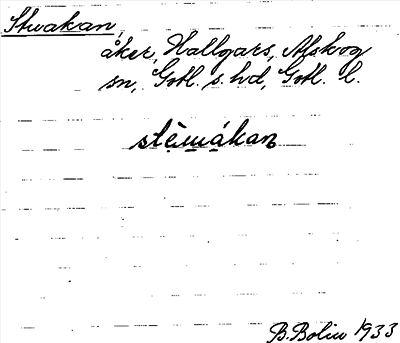 Stwakan,
åker, Hallgars, Alskog
sn, Gotl. s. hd, Gotl. l.
stèmákan
B. Bolin 1933